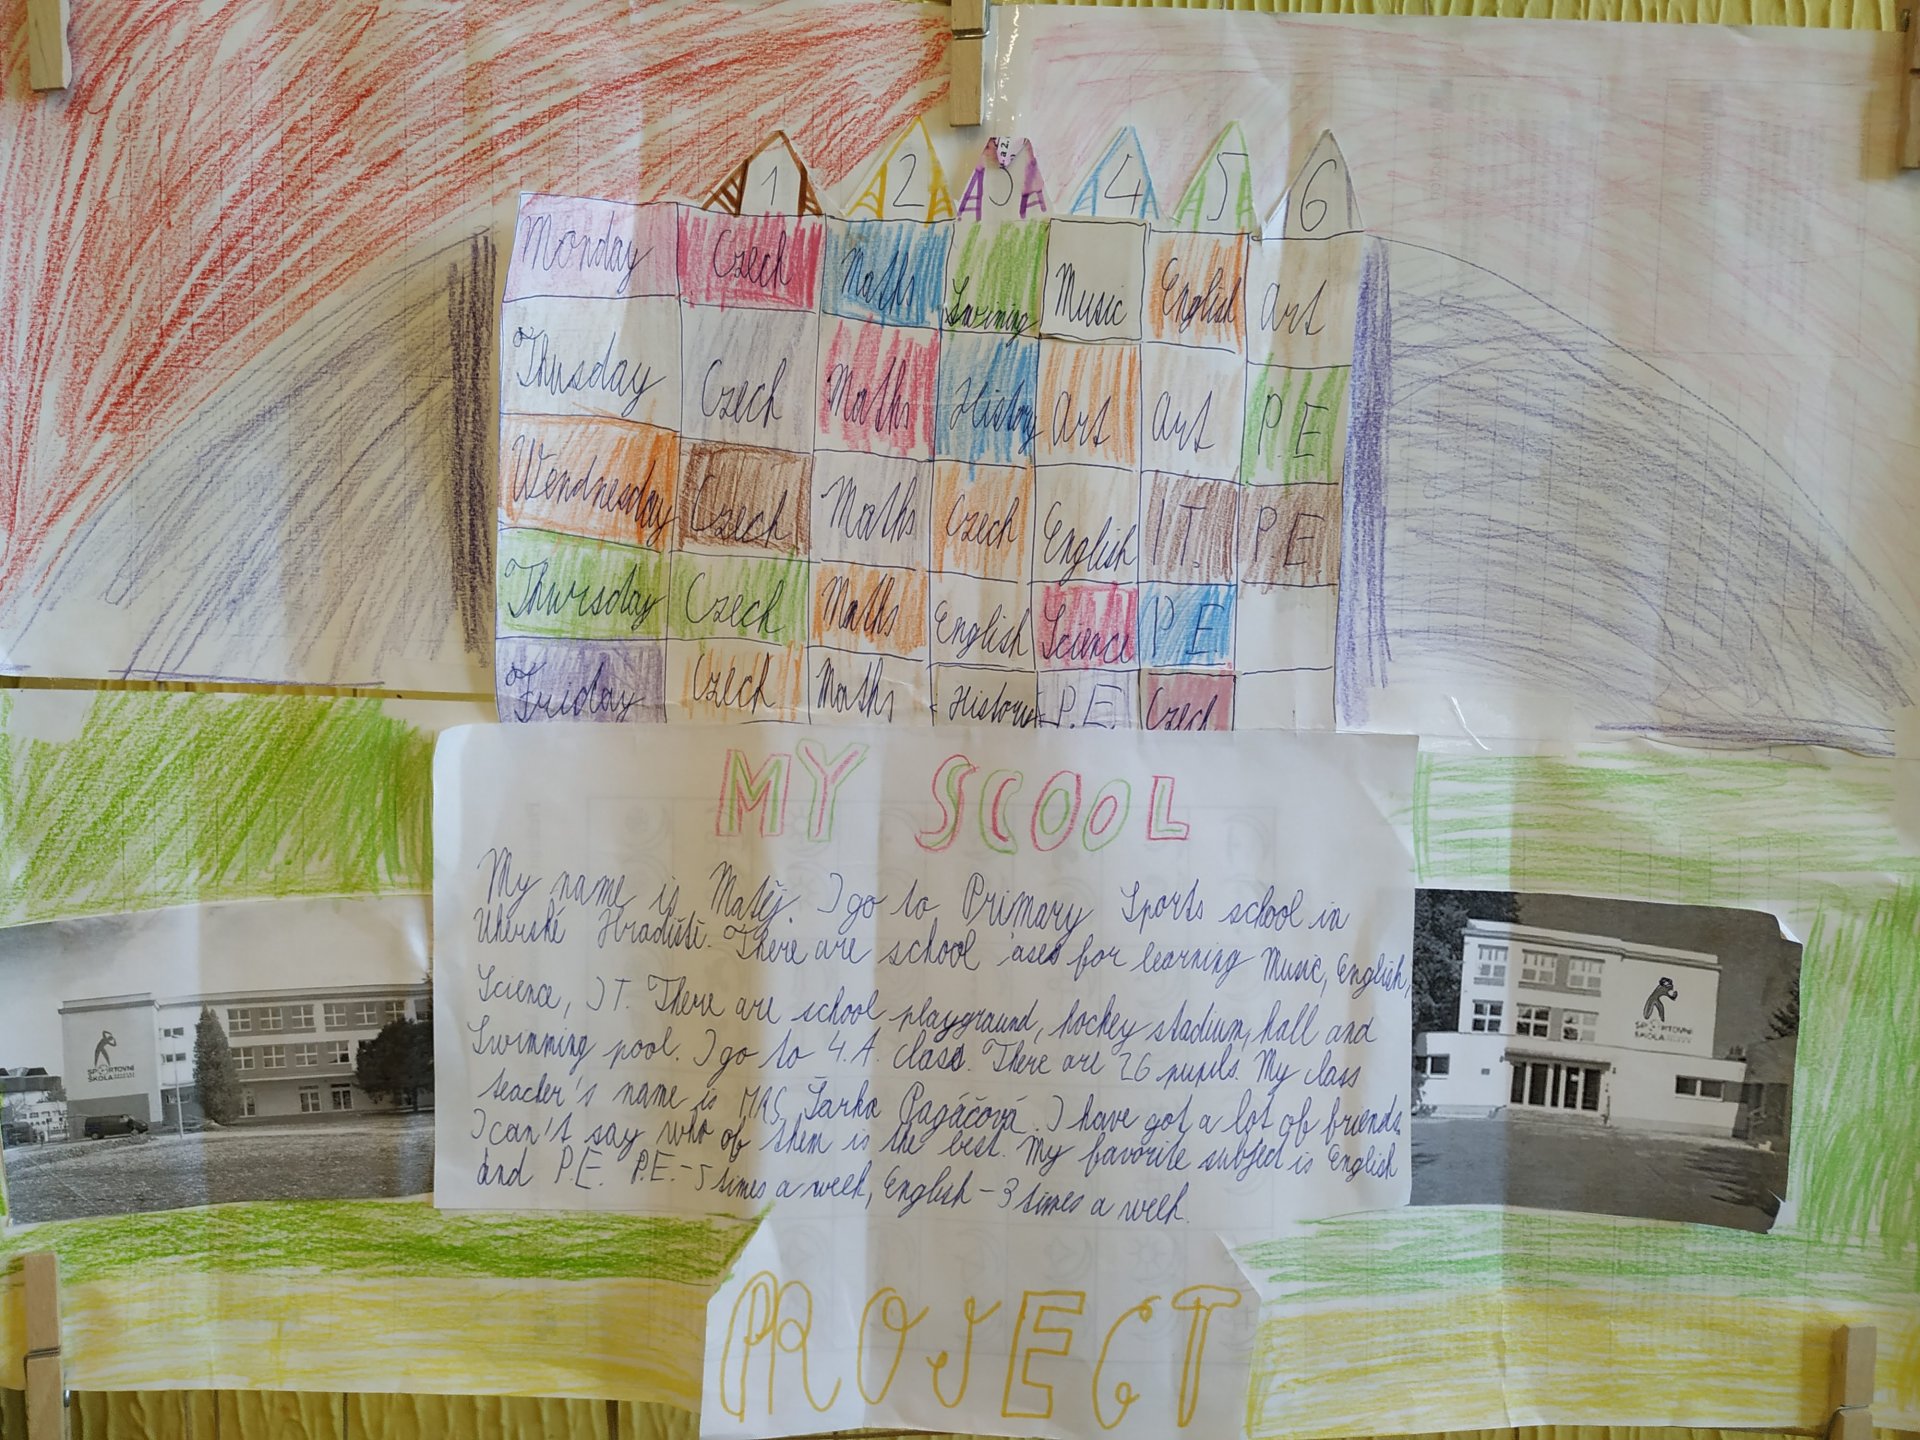 1 2 3 4 5 6
Monday Czech Maths Swimming Music English Art
Thusday Czech Maths History Art Art P.E
Wendnesday Czech Maths Czech English I T. P.E.
Thursday Czech Maths English Science P E
Friday Czech Maths History P.E. Czech
MY SCOOL
My name is Matěj. I go to Primary Sports school in
Uherské Hradiště. There are school for learning Music, English,
Science, I T. There are school playground, hockey stadium, hall and
Swimming pool. I go to 4. A. class. There are 26 pupils. My class
teacher's name is Šárka Pagáčová. I have got a lot of friends.
I can't say who of them is the best. My favorite subject is English
and P.E. P.E. - 5 times a week, English - 3 times a week.
SPORTOVNÍ
ŠKOLA
SPORTOVNÍ
ŠKOLA
PROJECT